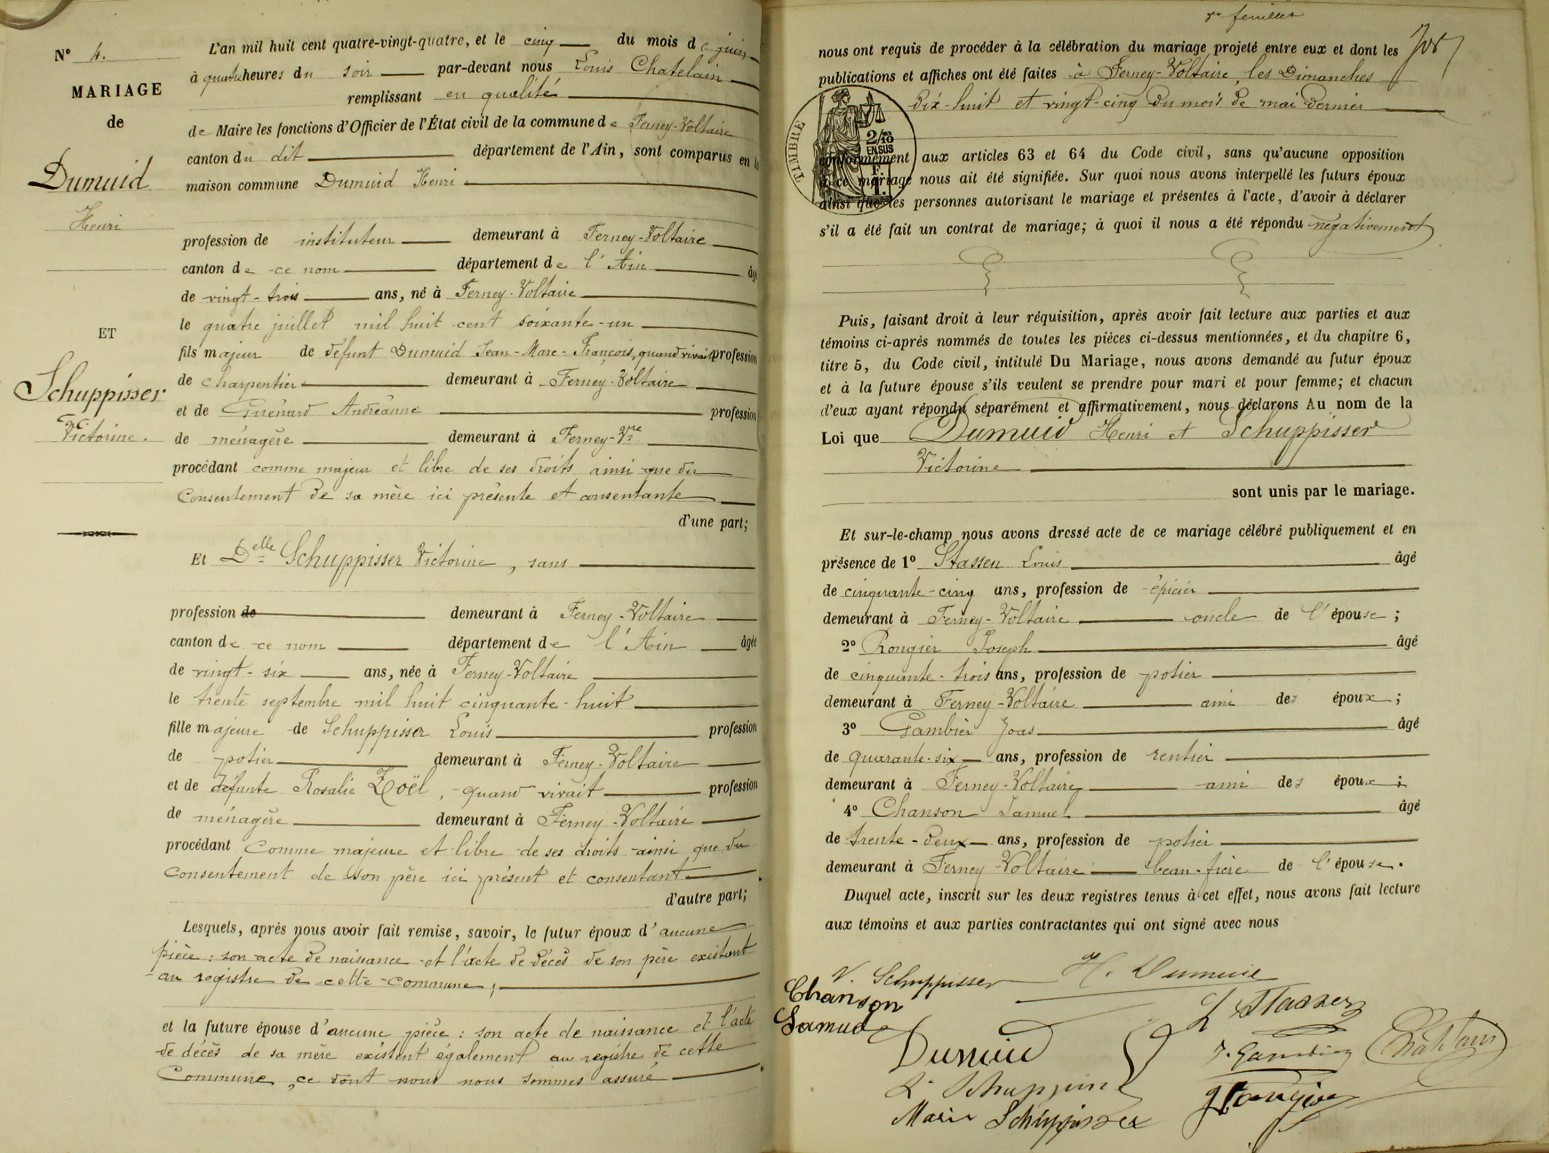 N° 4.
MARIAGE
de
Dumuid
Henri
ET
Schuppisser
Victorine.
L'an mil huit cent quatre-vingt-quatre, et le cinq du mois de juin
à quatre heures du soir par-devant nous Louis Chatelain
remplissant en qualité
de Maire les fonctions d'Officier de l'État civil de la commune de Ferney-Voltaire
canton du dit département de l'Ain, sont comparus en la
maison commune Dumuid Henri
profession de instituteur demeurant à Ferney-Voltaire
canton de ce nom département de l'Ain âgé
de vingt-trois ans, né à Ferney-Voltaire
le quatre juillet mil huit cent soixante-un
fils majeur de défunt Dumuid Jean-Marc-François, quand vivait profession
de charpentier demeurant à Ferney-Voltaire
et de Guénard Andréanne profession
de ménagère demeurant à Ferney-Vre
procédant comme majeur et libre de ses droits ainsi que du
consentement de sa mère ici présente et consentante
d'une part;
Et Delle Schuppisser Victorine, sans
profession de demeurant à Ferney-Voltaire
canton de ce nom département de l'Ain âgée
de vingt-six ans, née à Ferney-Voltaire
le trente septembre mil huit cinquante-huit
fille majeure de Schuppisser Louis profession
de potier demeurant à Ferney-Voltaire
et de défunte Rosalie Zoël, quand vivait profession
de ménagère demeurant à Ferney-Voltaire
procédant comme majeure et libre de ses droits ainsi que du
consentement de son père ici présent et consentant
d'autre part;
Lesquels, après nous avoir fait remise, savoir, le futur époux d'aucune
pièce; son acte de naissance et l'acte de décès de son père existant
au registre de cette commune;
et la future épouse d'aucune pièce: son acte de naissance et l'acte
de décès de sa mère existent également au registre de cette
Commune, ce dont nous nous sommes assuré
feuillet
nous ont requis de procéder à la célébration du mariage projeté entre eux et dont les
publications et affiches ont été faites à Ferney-Voltaire, les Dimanches
dix-huit et vingt-cinq du mois de mai dernier
TIMBRE
2/10
EN SUS
conformément aux articles 63 et 64 du Code civil, sans qu'aucune opposition
à ce mariage nous ait été signifiée. Sur quoi nous avons interpellé les futurs époux
ainsi que les personnes autorisant le mariage et présentes à l'acte, d'avoir à déclarer
s'il a été fait un contrat de mariage; à quoi il nous a été répondu négativement
Puis, faisant droit à leur réquisition, après avoir fait lecture aux parties et aux
témoins ci-après nommés de toutes les pièces ci-dessus mentionnées, et du chapitre 6,
titre 5, du Code civil, intitulé Du Mariage, nous avons demandé au futur époux
et à la future épouse s'ils veulent se prendre pour mari et pour femme; et chacun
d'eux ayant répondu séparément et affirmativement, nous déclarons Au nom de la
Loi que Dumuid Henri et Schuppisser
Victorine
sont unis par le mariage.
Et sur-le-champ nous avons dressé acte de ce mariage célébré publiquement et en
présence de 1° Stassen Louis âgé
de cinquante-cinq ans, profession de épicier
demeurant à Ferney-Voltaire oncle de l'épouse;
2° Rongier Joseph âgé
de cinquante-trois ans, profession de potier
demeurant à Ferney-Voltaire ami des époux;
3° Gambier Joas âgé
de quarante-six ans, profession de rentier
demeurant à Ferney-Voltaire ami des époux;
4° Chanson Samuel âgé
de trente-deux ans, profession de potier
demeurant à Ferney-Voltaire beau-frère de l'épouse.
Duquel acte, inscrit sur les deux registres tenus à cet effet, nous avons fait lecture
aux témoins et aux parties contractantes qui ont signé avec nous
V. Schuppisser H. Dumuid
Chanson
Samuel
L Stassen
Dumuid
J. Gambier
Chatelain
L. Schuppisser
Marie Schuppisser